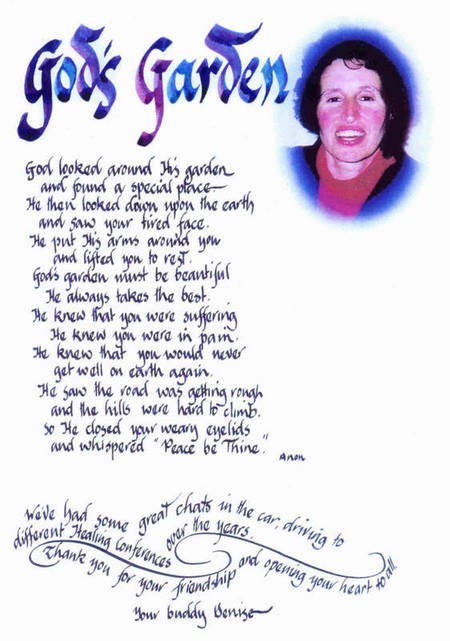 God's Garden
God looked around His garden
and found a special place—
He then looked down upon the earth
and saw your tired face.
He put His arms around you
and lifted you to rest.
God's garden must be beautiful
He always takes the best.
He knew that you were suffering
He knew you were in pain.
He knew that you would never
get well on earth again.
He saw the road was getting rough
and the hills were hard to climb.
So He closed your weary eyelids
and whispered "Peace be Thine".
Anon
We've had some great chats in the car, driving to
different Healing Conferences over the years.
Thank you for your friendship and opening your heart to all
Your buddy Denise